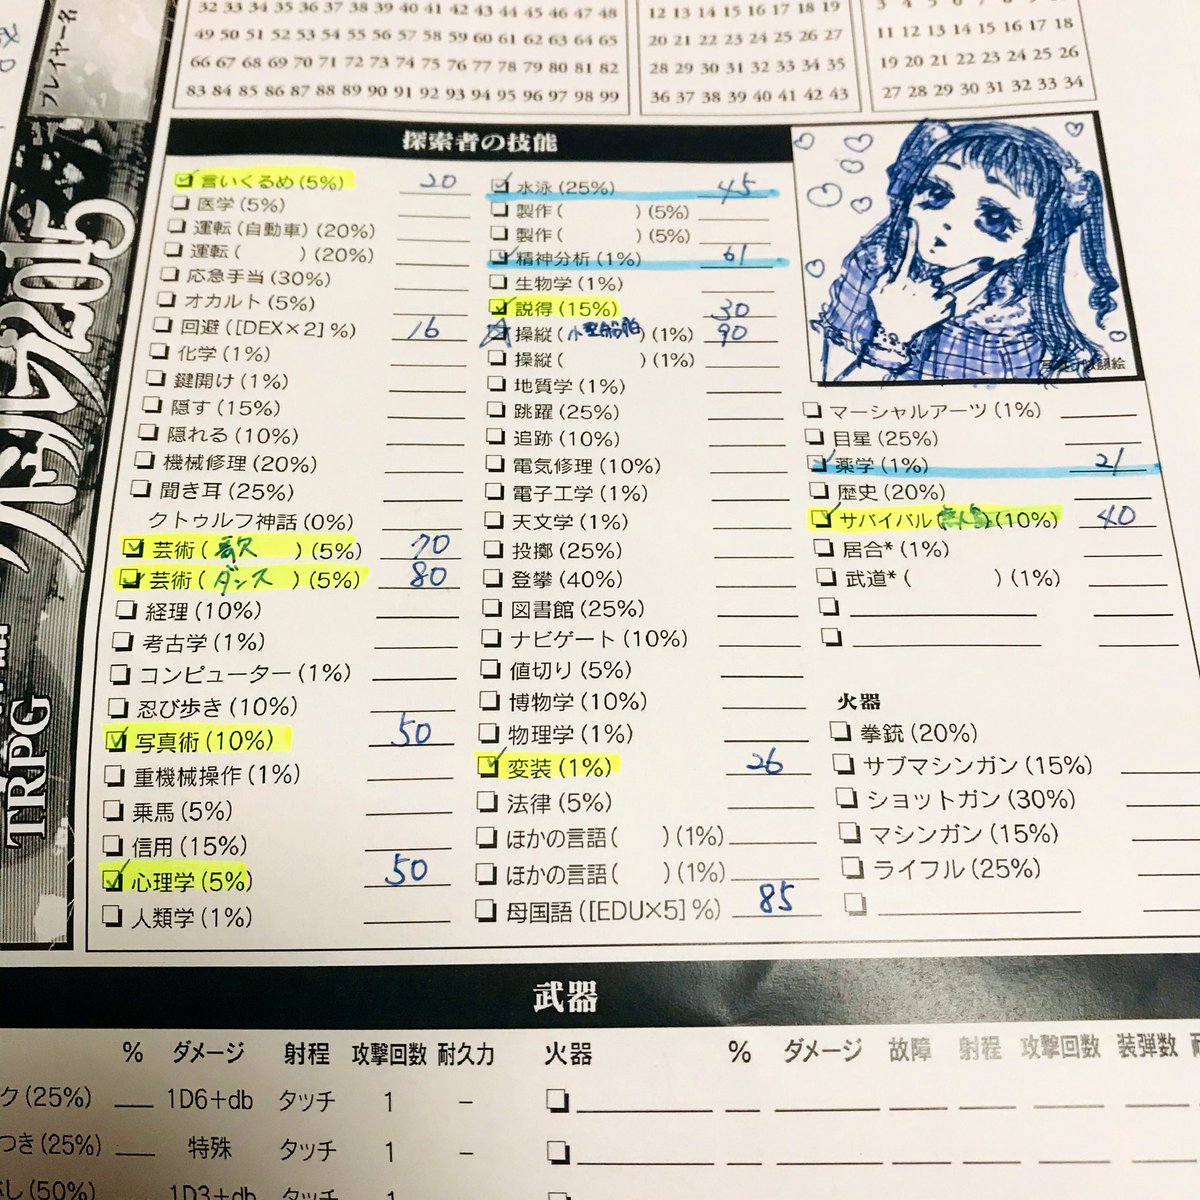 プレイヤー名
32 33 34 35 36 37 38 39 40 41 42 43 44 45 46 47 48
49 50 51 52 53 54 55 56 57 58 59 60 61 62 63 64 65
66 67 68 69 70 71 72 73 74 75 76 77 78 79 80 81 82
83 84 85 86 87 88 89 90 91 92 93 94 95 96 97 98 99
12 13 14 15 16 17 18 19
20 21 22 23 24 25 26 27
28 29 30 31 32 33 34 35
36 37 38 39 40 41 42 43
3 4 5 6 7 8 9
11 12 13 14 15 16 17 18
19 20 21 22 23 24 25 26
27 28 29 30 31 32 33 34
2015
TRPG
探索者の技能
言いくるめ (5%) 20
医学 (5%)
運転 (自動車) (20%)
運転 ( ) (20%)
応急手当 (30%)
オカルト (5%)
回避 ([DEX×2] %) 16
化学 (1%)
鍵開け (1%)
隠す (15%)
隠れる (10%)
機械修理 (20%)
聞き耳 (25%)
クトゥルフ神話 (0%)
芸術 ( 歌 ) (5%) 70
芸術 ( ダンス ) (5%) 80
経理 (10%)
考古学 (1%)
コンピューター (1%)
忍び歩き (10%)
写真術 (10%) 50
重機械操作 (1%)
乗馬 (5%)
信用 (15%)
心理学 (5%) 50
人類学 (1%)
水泳 (25%) 45
製作 ( ) (5%)
製作 ( ) (5%)
精神分析 (1%) 61
生物学 (1%)
説得 (15%) 30
操縦 (小型船舶) (1%) 90
操縦 ( ) (1%)
地質学 (1%)
跳躍 (25%)
追跡 (10%)
電気修理 (10%)
電子工学 (1%)
天文学 (1%)
投擲 (25%)
登攀 (40%)
図書館 (25%)
ナビゲート (10%)
値切り (5%)
博物学 (10%)
物理学 (1%)
変装 (1%) 26
法律 (5%)
ほかの言語 ( ) (1%)
ほかの言語 ( ) (1%)
母国語 ([EDU×5] %) 85
似顔絵
マーシャルアーツ (1%)
目星 (25%)
薬学 (1%) 21
歴史 (20%)
サバイバル ( ) (10%) 40
居合* (1%)
武道* ( ) (1%)
火器
拳銃 (20%)
サブマシンガン (15%)
ショットガン (30%)
マシンガン (15%)
ライフル (25%)
武器
% ダメージ 射程 攻撃回数 耐久力
ク (25%) 1D6+db タッチ 1 −
つき (25%) 特殊 タッチ 1 −
ぶし (50%) 1D3+db タッチ 1
火器 % ダメージ 故障 射程 攻撃回数 装弾数 耐